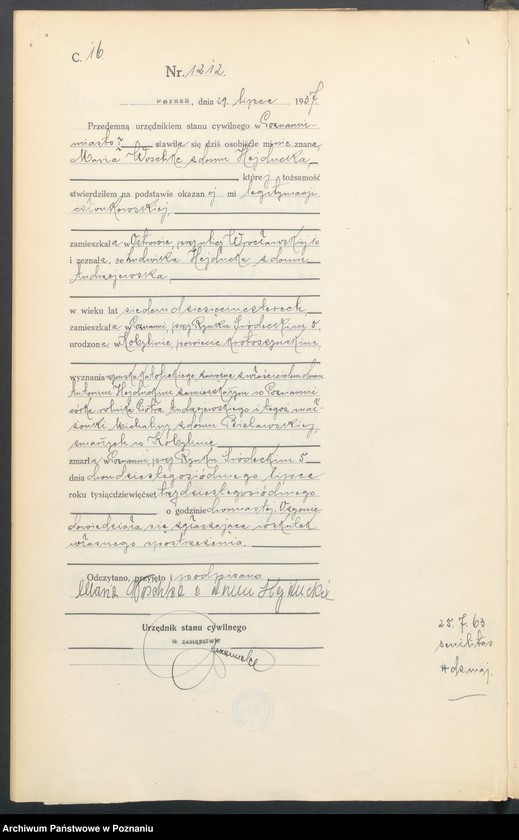 C. 16
Nr. 1212.
Poznań, dnia 29. lipca 1937.
Przedemną urzędnikiem stanu cywilnego w Poznaniu-
mieście stawiła się dziś osobiście mi nie znana,
Maria Woschke z domu Hejducka,
której tożsamość
stwierdziłem na podstawie okazanej mi legitymacji
członkowskiej,
zamieszkała w Ostrowie, przy ulicy Wrocławskiej 10
i zeznała, że Ludwika Hejducka z domu
Andrzejewska,
w wieku lat siedemdziesięciu czterech,
zamieszkała w Poznaniu, przy Rynku Śródeckim 5,
urodzona w Kobylinie, powiecie krotoszyńskim,
wyznania rzymsko katolickiego, zamężna z właścicielem domu
Antonim Hejduckim zamieszkałym w Poznaniu
córka rolnika Piotra Andrzejewskiego i tegoż mał-
żonki Michaliny z domu
zmarłych w Kobylinie
zmarła w Poznaniu, przy Rynku Śródeckim 5
dnia dwudziestego siódmego lipca
roku tysiącdziewięćset trzydziestego siódmego
o godzinie dwunastej. O zgonie
dowiedziała się zgłaszająca wskutek
własnego spostrzeżenia.
Odczytano, przyjęto i podpisano
Maria Woschke z domu Hejducka
Urzędnik stanu cywilnego
w zastępstwie
25. 7. 63
senilitas
Archiwum Państwowe w Poznaniu